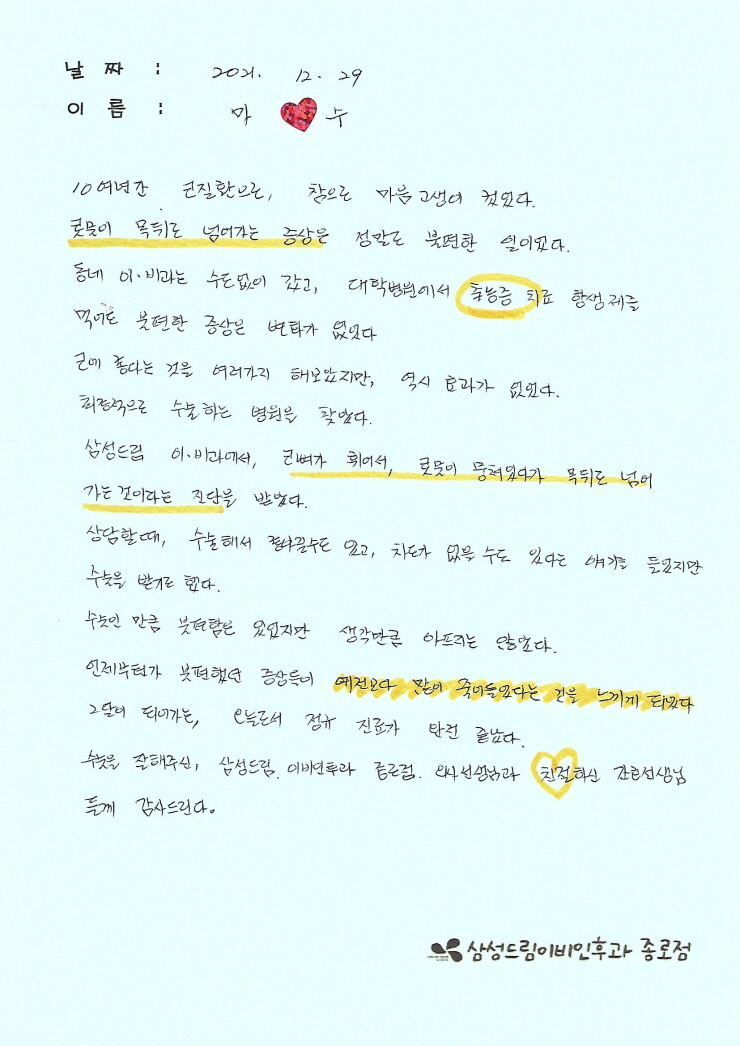 날 짜 : 2021. 12. 29
이 름 : 마 수
10여년간 코질환으로, 참으로 마음고생이 컸었다.
콧물이 목뒤로 넘어가는 증상은 정말로 불편한 일이었다.
동네 이·비과는 수도없이 갔고, 대학병원에서 축농증 치료 항생제를
먹어도 불편한 증상은 변화가 없었다
코에 좋다는 것을 여러가지 해보았지만, 역시 효과가 없었다.
최종적으로 수술하는 병원을 찾았다.
삼성드림 이·비과에서, 코뼈가 휘어서, 콧물이 뭉쳐있다가 목뒤로 넘어
가는것이라는 진단을 받았다.
상담할때, 수술해서 좋아질수도 있고, 차도가 없을 수도 있다는 얘기를 들었지만
수술을 받기로 했다.
수술인 만큼 불편함은 있었지만 생각만큼 아프지는 않았다.
언제부턴가 불편했던 증상들이 예전보다 많이 줄어들었다는 것을 느끼게 되었다
2달이 되어가는, 오늘로서 정규 진료가 완전 끝났다.
수술을 잘해주신, 삼성드림 이비인후과 종로점. 의사선생님과 친절하신 간호선생님
들께 감사드린다.
삼성드림이비인후과 종로점